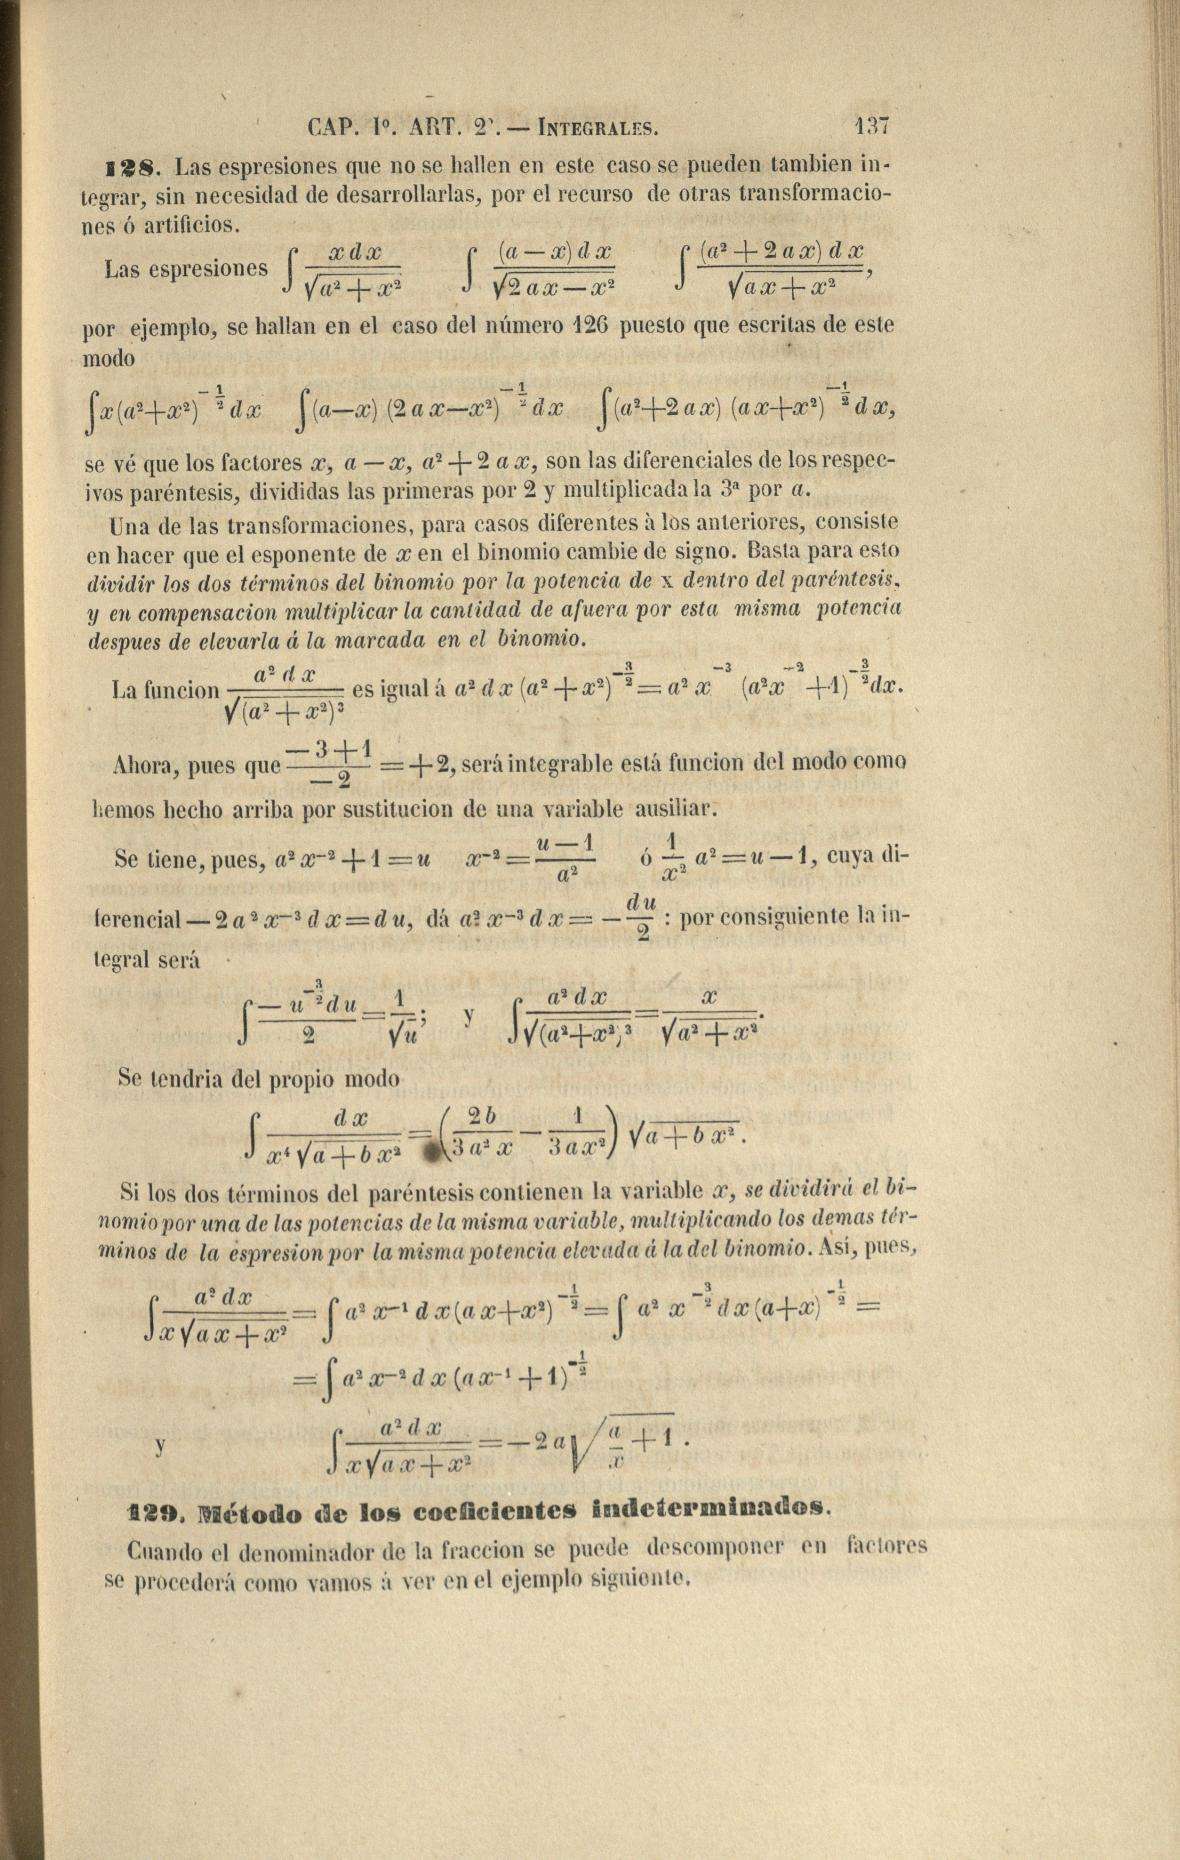 CAP. Iº. ART. 2º. — INTEGRALES. 137
128. Las espresiones que no se hallen en este caso se pueden tambien in-
tegrar, sin necesidad de desarrollarlas, por el recurso de otras transformacio-
nes ó artificios.
Las espresiones ∫ x dx / √(a² + x²)   ∫ (a — x) d x / √(2 a x — x²)   ∫ (a² + 2 a x) d x / √(a x + x²),
por ejemplo, se hallan en el caso del número 126 puesto que escritas de este
modo
∫x(a²+x²)^(-1/2) d x   ∫(a—x) (2 a x—x²)^(-1/2) d x   ∫(a²+2 a x) (a x+x²)^(-1/2) d x,
se vé que los factores x, a — x, a² + 2 a x, son las diferenciales de los respec-
ivos paréntesis, divididas las primeras por 2 y multiplicada la 3ª por a.
Una de las transformaciones, para casos diferentes à los anteriores, consiste
en hacer que el esponente de x en el binomio cambie de signo. Basta para esto
dividir los dos términos del binomio por la potencia de x dentro del paréntesis,
y en compensacion multiplicar la cantidad de afuera por esta misma potencia
despues de elevarla á la marcada en el binomio.
La funcion a² d x / √(a² + x²)³ es igual á a² d x (a² + x²)^(-3/2) = a² x^(-3) (a²x^(-2) +1)^(-3/2) dx.
Ahora, pues que (—3+1) / —2 = +2, será integrable está funcion del modo como
hemos hecho arriba por sustitucion de una variable ausiliar.
Se tiene, pues, a² x⁻² + 1 = u   x⁻² = (u — 1) / a²   ó 1/x² a² = u — 1, cuya di-
ferencial — 2 a² x⁻³ d x = d u, dá a² x⁻³ d x = — du/2 : por consiguiente la in-
tegral será
∫ — u^(-3/2) d u / 2 = 1/√u;   y   ∫ a² d x / √(a²+x²)³ = x / √(a² + x²).
Se tendria del propio modo
∫ d x / x⁴ √(a + b x²) = (2 b / 3 a² x — 1 / 3 a x²) √(a + b x²).
Si los dos términos del paréntesis contienen la variable x, se dividirá el bi-
nomio por una de las potencias de la misma variable, multiplicando los demas tér-
minos de la espresion por la misma potencia elevada á la del binomio. Así, pues,
∫ a² d x / x √(a x + x²) = ∫ a² x⁻¹ d x (a x+x²)^(-1/2) = ∫ a² x^(-3/2) d x (a+x)^(-1/2) =
= ∫ a² x⁻² d x (a x⁻¹ + 1)^(-1/2)
y   ∫ a² d x / x √(a x + x²) = — 2 a √(a/x + 1).
129. Método de los coeficientes indeterminados.
Cuando el denominador de la fraccion se puede descomponer en factores
se procederá como vamos á ver en el ejemplo siguiente.